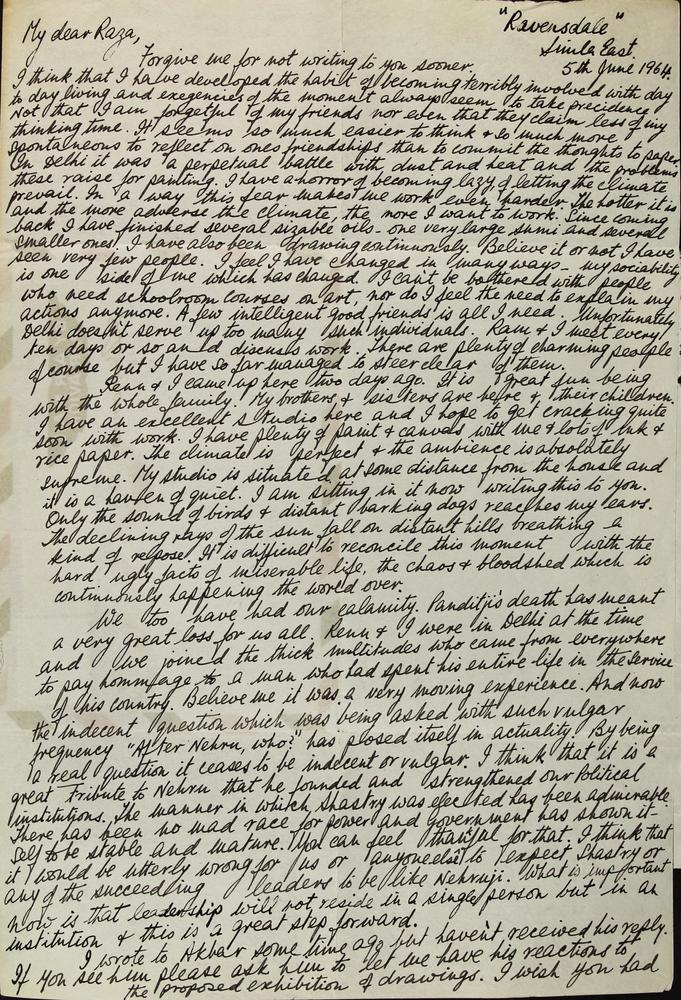 "Ravensdale"
Simla East.
5th June 1964.
My dear Raza,
Forgive me for not writing to you sooner.
I think that I have developed the habit of becoming terribly involved with day
to day living and exegencies of the moment always seem to take precidence.
Not that I am forgetful of my friends nor even that they claim less of my
thinking time. It seems so much easier to think & so much more
spontaneous to reflect on ones friendships than to commit the thoughts to paper.
In Delhi it was a perpetual battle with dust and heat and the problems
these raise for painting. I have a horror of becoming lazy, of letting the climate
prevail. In a way this fear makes me work even harder. The hotter it is
and the more adverse the climate, the more I want to work. Since coming
back I have finished several sizable oils - one very large sumi and several
smaller ones. I have also been drawing continuously. Believe it or not I have
seen very few people. I feel I have changed in many ways - my sociability
is one side of me which has changed. I can't be bothered with people
who need schoolroom courses on art, nor do I feel the need to explain my
actions anymore. A few intelligent good friends is all I need. Unfortunately
Delhi doesn't serve up too many such individuals. Ram & I meet every
ten days or so and discuss work. There are plenty of charming people
of course but I have so far managed to steer clear of them.
Renu & I came up here two days ago. It is great fun being
with the whole family. My brothers & sisters are here & their children.
I have an excellent studio here and I hope to get cracking quite
soon with work. I have plenty of paint & canvas with me & lots of ink &
rice paper. The climate is perfect & the ambience is absolutely
supreme. My studio is situated at some distance from the house and
it is a haven of quiet. I am sitting in it now writing this to you.
Only the sound of birds & distant barking dogs reaches my ears.
The declining rays of the sun fall on distant hills breathing a
kind of repose. It is difficult to reconcile this moment with the
hard ugly facts of miserable life, the chaos & bloodshed which is
continuously happening the world over.
We too have had our calamity. Panditji's death has meant
a very great loss for us all. Renu & I were in Delhi at the time
and we joined the thick multitudes who came from everywhere
to pay hommage to a man who had spent his entire life in the service
of his country. Believe me it was a very moving experience. And now
the indecent question which was being asked with such vulgar
frequency "After Nehru, who?" has posed itself in actuality. By being
a real question it ceases to be indecent or vulgar. I think that it is a
great Tribute to Nehru that he founded and strengthened our Political
institutions. The manner in which Shastry was elected has been admirable.
There has been no mad race for power and Government has shown it-
self to be stable and mature. We can feel thankful for that. I think that
it would be utterly wrong for us or anyone else to expect Shastry or
any of the succeeding leaders to be like Nehruji. What is important
now is that leadership will not reside in a single person but in an
institution & this is a great step forward.
I wrote to Akbar some time ago but haven't received his reply.
If you see him please ask him to let me have his reactions to
the proposed exhibition of drawings. I wish you had